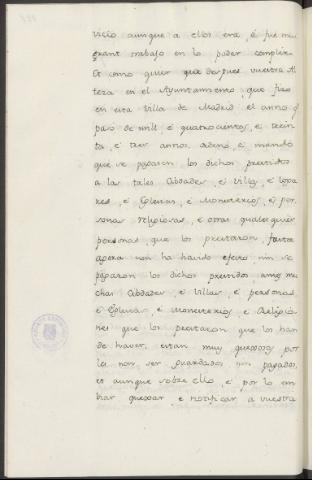 vicio aunque a ellos era, é fue mui
grant trabajo en lo poder complir.
Et como quier que despues vuestra Al
teza en el Ayuntamiento, que fizo
en esta Villa de Madrid el anno q̃
paso de mill, é quatrocientos, é trein
ta, é tres annos, ordenó, é mandó
que se pagasen los dichos prestidos
a las tales Cibdades, é Villas, é loga
res, é Eglesias, é Monesterios, é per
sonas religiosas, é otras qualesquier
personas, que los prestaron, fasta
agora non ha havido efecto nin se
pagaron los dichos prestidos, antes mu
chas Cibdades, é Villas, é personas,
é Eglesias, é Monesterios, é Religio
nes que los prestaron que los han
de haver, estan muy quexosos por
les non ser guardados nin pagados,
et aunque sobre ello, é por lo em
biar quexar e notificar a vuestra